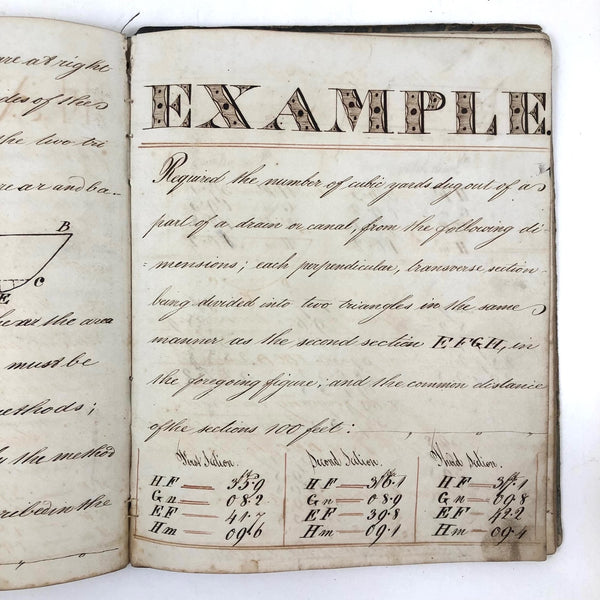 are at right
des of the
the two tri
re ar and ba-
B
C
E
the area
must be
ethods;
ly the method
cribed in the
EXAMPLE.
Required the number of cubic yards dug out of a
part of a drain or canal, from the following di-
=mensions; each perpendicular, transverse section
being divided into two triangles in the same
manner as the second section EFGH, in
the foregoing figure; and the common distance
of the sections 100 feet:
First Section. Second Section. Third Section.
HF — 35.9 HF — 36.1 HF — 37.1
Gn — 08.2 Gn — 08.9 Gn — 09.8
EF — 41.7 EF — 39.8 EF — 42.2
Hm — 09.6 Hm — 09.1 Hm — 09.4